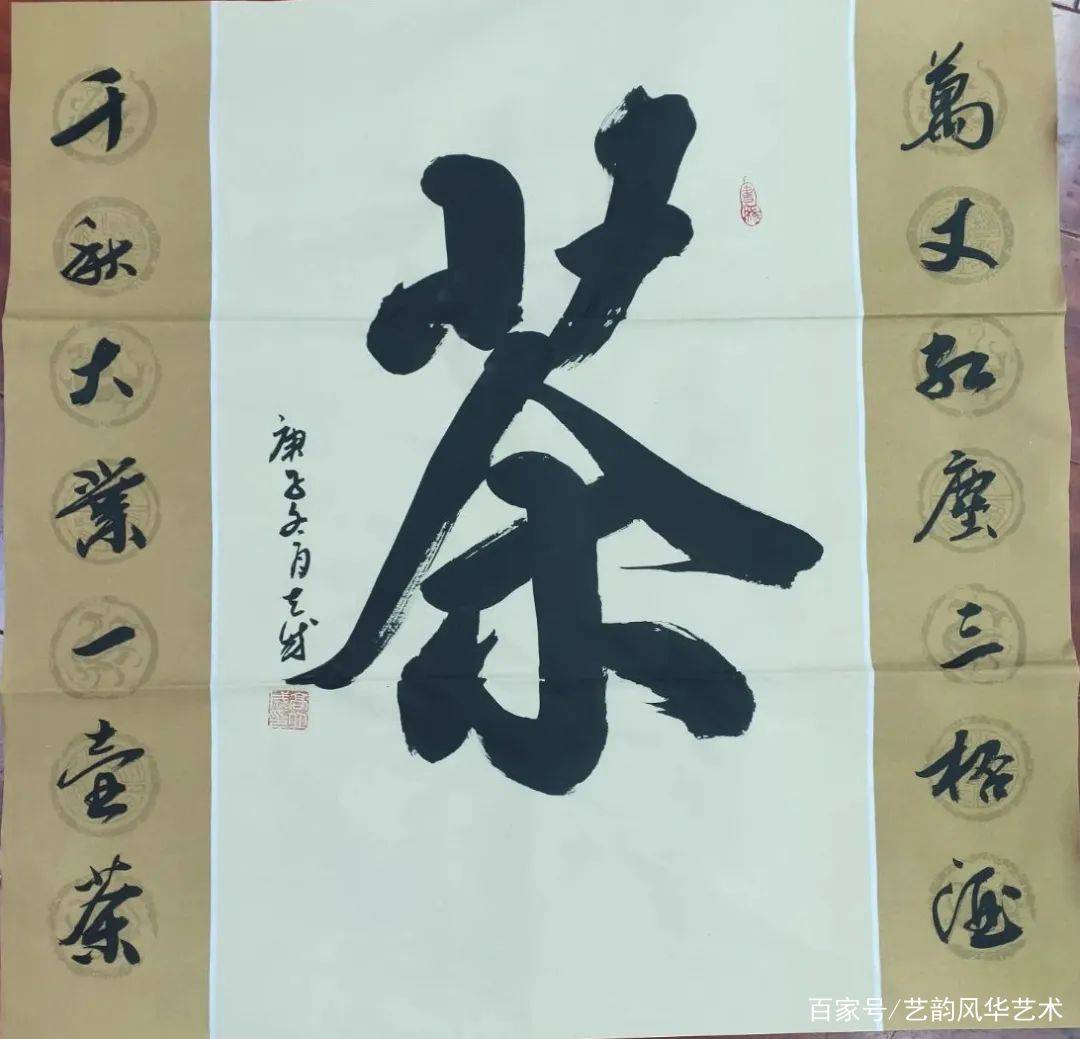 萬丈紅塵三桮酒
茶
庚子冬月志成
千秋大業一壺茶
百家号/艺韵风华艺术